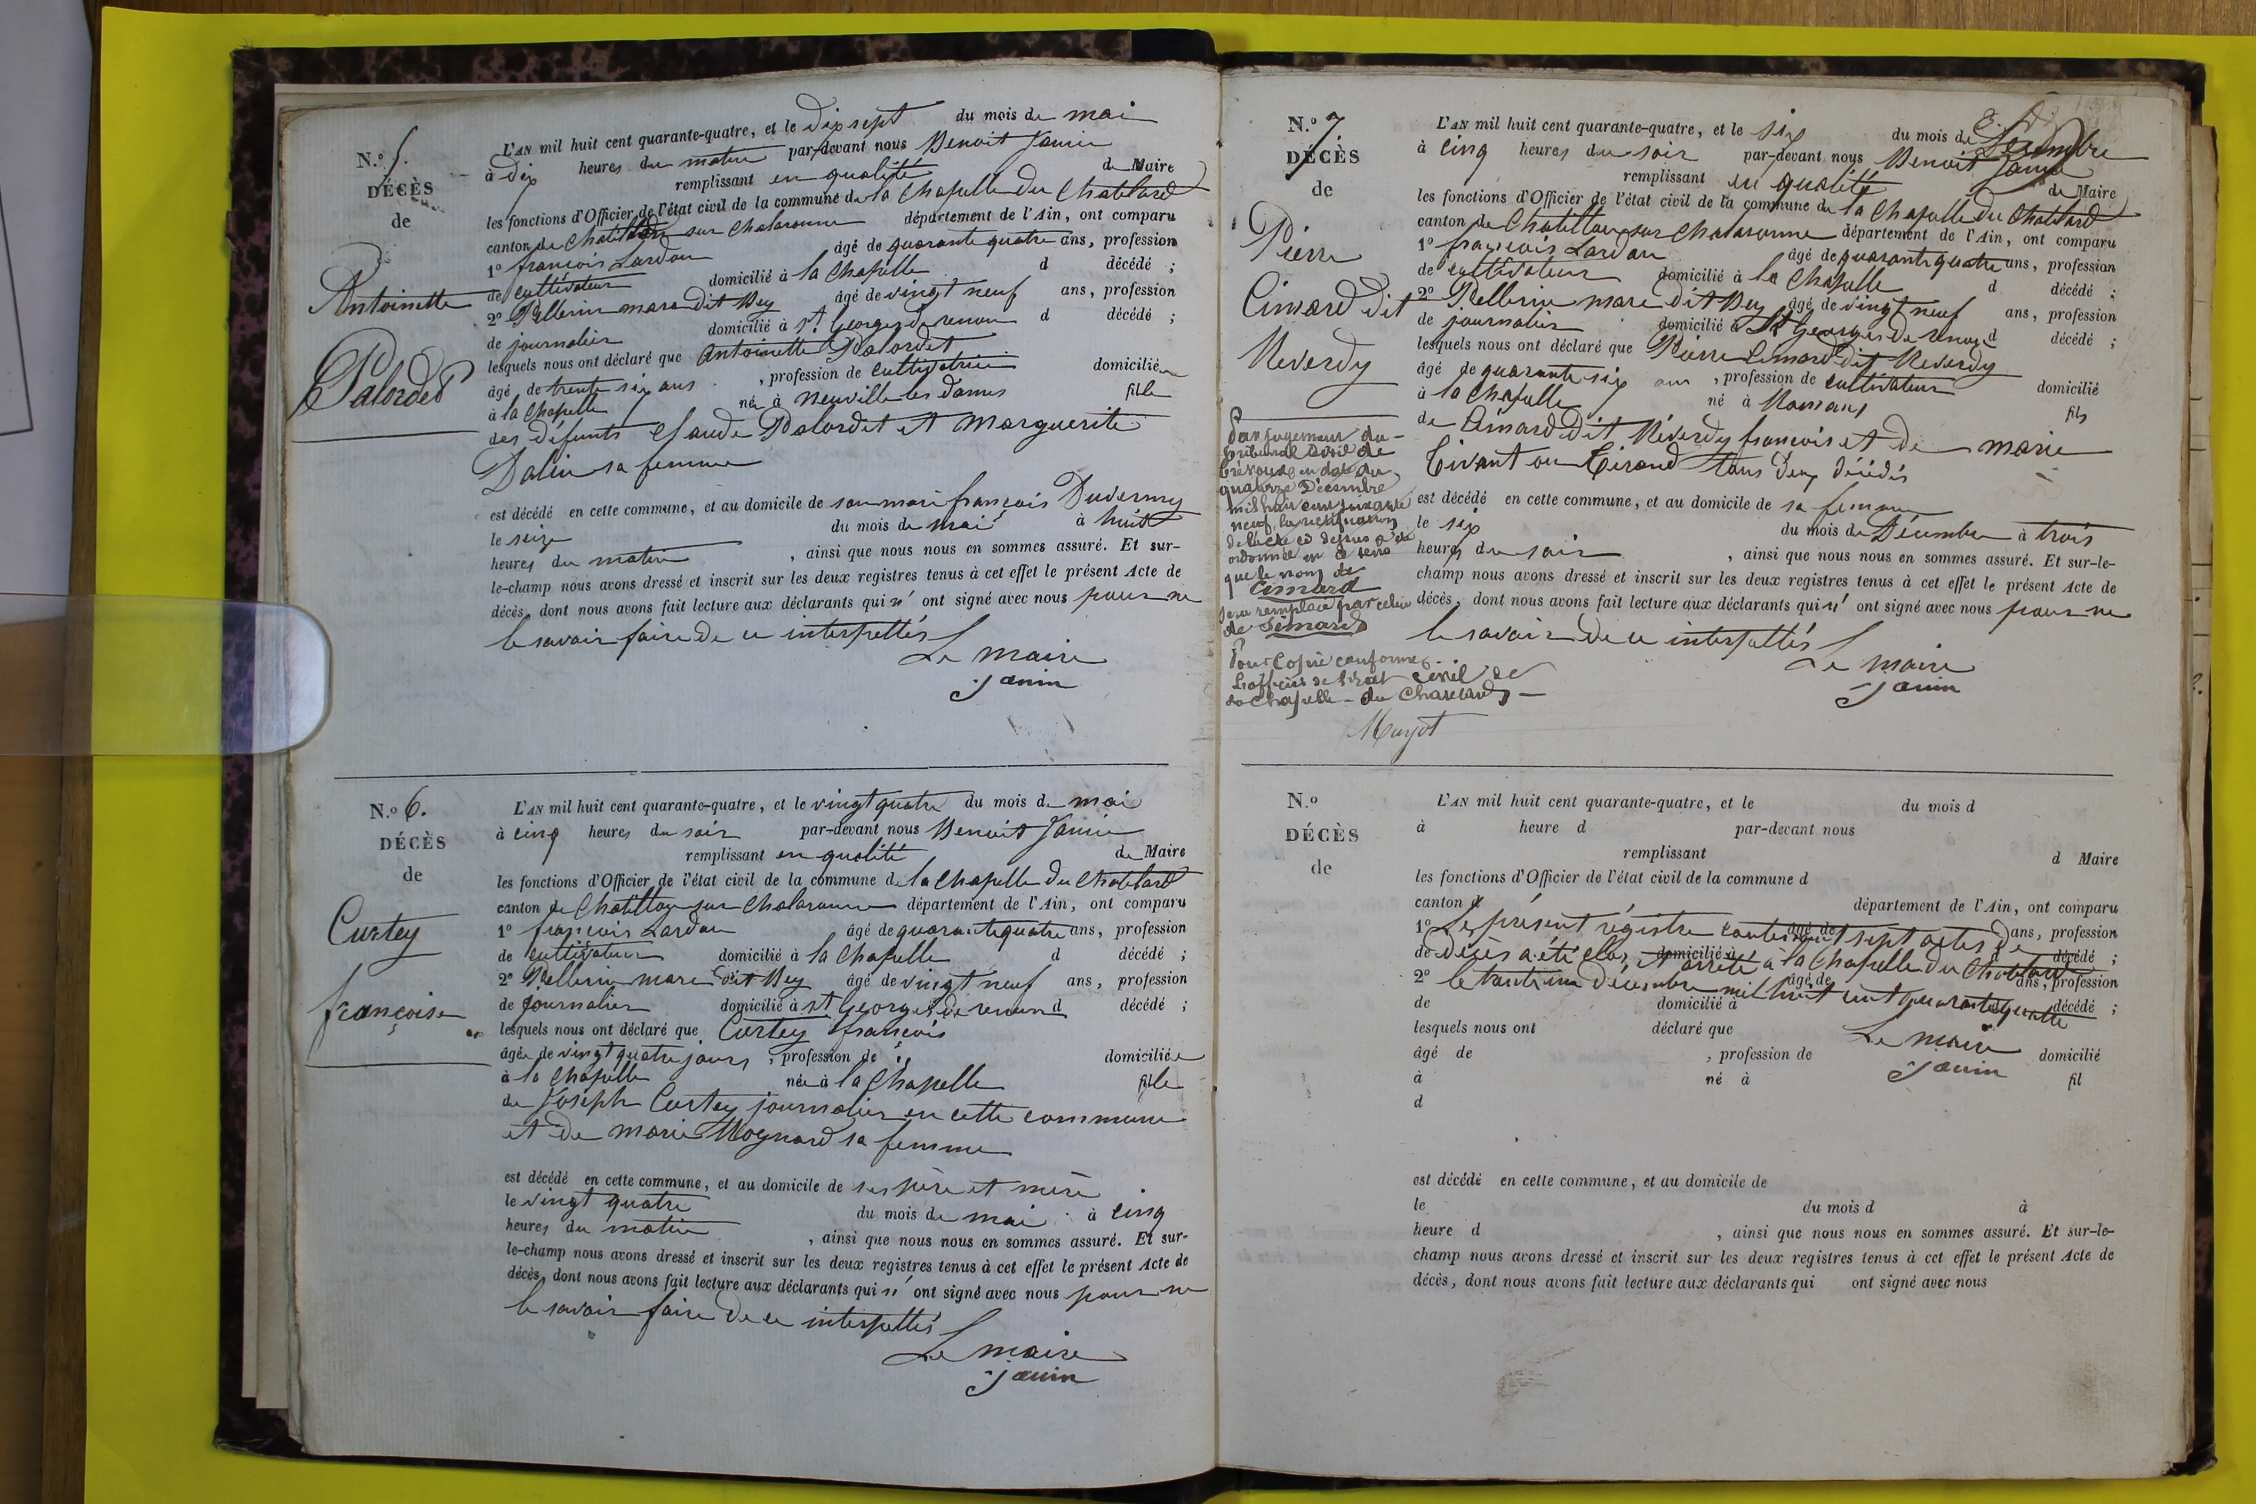 N.o 5.
DÉCÈS
de
Antoinette
Palordet
L'AN mil huit cent quarante-quatre, et le dix sept du mois de mai
à dix heures du matin par-devant nous Benoit Janin
remplissant en qualité de Maire
les fonctions d'Officier de l'état civil de la commune de la Chapelle du Chatelard
canton de Chatillon sur Chalaronne département de l'Ain, ont comparu
1o françois Lardon âgé de quarante quatre ans, profession
de cultivateur domicilié à la Chapelle d décédé ;
2o Pellerin marc dit Bey âgé de vingt neuf ans, profession
de journalier domicilié à St Georges de renon d décédé ;
lesquels nous ont déclaré que Antoinette Palordet
âgé de trente six ans , profession de cultivatrice domiciliée
à la Chapelle née à neuville les dames fille
des défunts Claude Palordet et Marguerite
Dalin sa femme
est décédé en cette commune, et au domicile de son mari françois Duvernay
le seize du mois de mai à huit
heures du matin , ainsi que nous nous en sommes assuré. Et sur-
le-champ nous avons dressé et inscrit sur les deux registres tenus à cet effet le présent Acte de
décès, dont nous avons fait lecture aux déclarants qui n' ont signé avec nous pour ne
le savoir faire de ce interpellés
Le maire
Janin
N.o 6.
DÉCÈS
de
Curtey
françoise
L'AN mil huit cent quarante-quatre, et le vingt quatre du mois de mai
à cinq heures du soir par-devant nous Benoit Janin
remplissant en qualité de Maire
les fonctions d'Officier de l'état civil de la commune de la Chapelle du Chatelard
canton de Chatillon sur Chalaronne département de l'Ain, ont comparu
1o françois Lardon âgé de quarante quatre ans, profession
de cultivateur domicilié à la Chapelle d décédé ;
2o Pellerin marc dit Bey âgé de vingt neuf ans, profession
de journalier domicilié à St Georges de renon d décédé ;
lesquels nous ont déclaré que Curtey françois
âgée de vingt quatre jours , profession de domiciliée
à la Chapelle née à la Chapelle fille
de Joseph Curtey journalier en cette commune
et de marie Mognard sa femme
est décédé en cette commune, et au domicile de ses père et mère
le vingt quatre du mois de mai à cinq
heures du matin , ainsi que nous nous en sommes assuré. Et sur-
le-champ nous avons dressé et inscrit sur les deux registres tenus à cet effet le présent Acte de
décès, dont nous avons fait lecture aux déclarants qui n' ont signé avec nous pour ne
le savoir faire de ce interpellés
Le maire
Janin
N.o 7.
DÉCÈS
de
Pierre
Cimard dit
Reverdy
Par jugement du
tribunal civil de
Trévoux en date du
quatorze Décembre
mil huit cent soixante
neuf, la rectification
de l'acte ci dessus a été
ordonnée en ce sens
que le nom de
Cimard
sera remplacé par celui
de Simard
Pour Copie conforme
L'officier de l'état civil de
la Chapelle - du Chatelard
L'AN mil huit cent quarante-quatre, et le six du mois de Décembre
à cinq heures du soir par-devant nous Benoit Janin
remplissant en qualité de Maire
les fonctions d'Officier de l'état civil de la commune de la Chapelle du Chatelard
canton de Chatillon sur Chalaronne département de l'Ain, ont comparu
1o françois Lardon âgé de quarante quatre ans, profession
de cultivateur domicilié à la Chapelle d décédé ;
2o Pellerin marc dit Bey âgé de vingt neuf ans, profession
de journalier domicilié à St Georges de renon d décédé ;
lesquels nous ont déclaré que Pierre Cimard dit Reverdy
âgé de quarante six ans , profession de cultivateur domicilié
à la Chapelle né à Romans fils
de Cimard dit Réverdy françois et de marie
Tivant ou Girand tous deux décédés
est décédé en cette commune, et au domicile de sa femme
le six du mois de Décembre à trois
heures du soir , ainsi que nous nous en sommes assuré. Et sur-le-
champ nous avons dressé et inscrit sur les deux registres tenus à cet effet le présent Acte de
décès, dont nous avons fait lecture aux déclarants qui n' ont signé avec nous pour ne
le savoir de ce interpellés
Le maire
Janin
N.o
DÉCÈS
de
L'AN mil huit cent quarante-quatre, et le du mois d
à heure d par-devant nous
remplissant d Maire
les fonctions d'Officier de l'état civil de la commune d
canton d département de l'Ain, ont comparu
1o Le présent régistre contenant sept actes de âgé de ans, profession
de décès a été clos et arrêté à la Chapelle du Chatelard domicilié à décédé ;
2o le trente un décembre mil huit cent quarante quatre âgé de ans, profession
de domicilié à décédé ;
lesquels nous ont déclaré que
Le maire
Janin
âgé de , profession de domicilié
à né à fil
d
est décédé en cette commune, et au domicile de
le du mois d à
heure d , ainsi que nous nous en sommes assuré. Et sur-le-
champ nous avons dressé et inscrit sur les deux registres tenus à cet effet le présent Acte de
décès, dont nous avons fait lecture aux déclarants qui ont signé avec nous